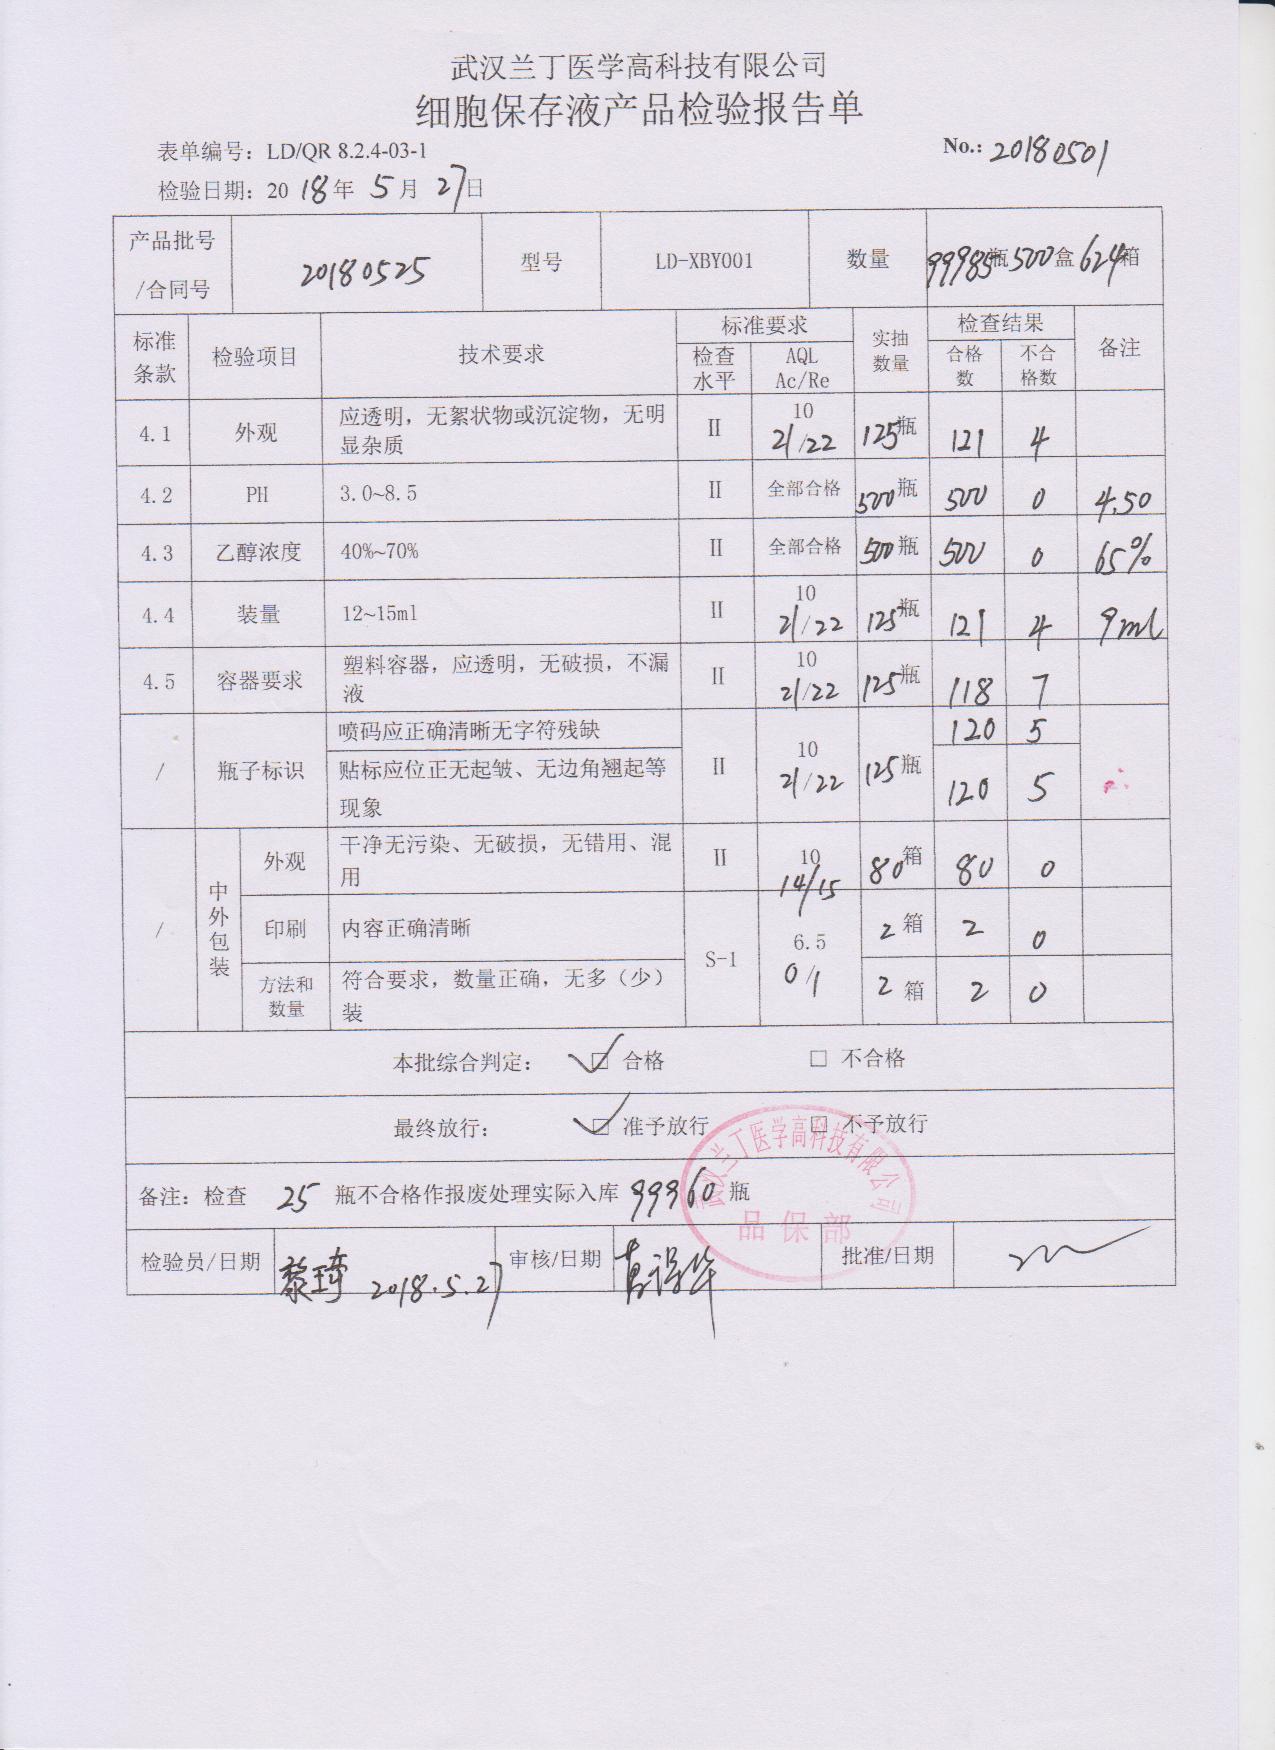 武汉兰丁医学高科技有限公司
细胞保存液产品检验报告单
表单编号：LD/QR 8.2.4-03-1
No.: 20180501
检验日期：2018年 5月 27日
产品批号/合同号 20180525 型号 LD-XBY001 数量 99985瓶500盒624箱
标准条款 检验项目 技术要求 标准要求 实抽数量 检查结果 备注
检查水平 AQL Ac/Re 合格数 不合格数
4.1 外观 应透明，无絮状物或沉淀物，无明显杂质 II 10 21/22 125瓶 121 4
4.2 PH 3.0~8.5 II 全部合格 500瓶 500 0 4.50
4.3 乙醇浓度 40%~70% II 全部合格 500瓶 500 0 65%
4.4 装量 12~15ml II 10 21/22 125瓶 121 4 9ml
4.5 容器要求 塑料容器，应透明，无破损，不漏液 II 10 21/22 125瓶 118 7
/ 瓶子标识 喷码应正确清晰无字符残缺 II 10 21/22 125瓶 120 5
贴标应位正无起皱、无边角翘起等现象 120 5
/ 中外包装 外观 干净无污染、无破损，无错用、混用 II 10 14/15 80箱 80 0
印刷 内容正确清晰 S-1 6.5 0/1 2箱 2 0
方法和数量 符合要求，数量正确，无多（少）装 2箱 2 0
本批综合判定： □ 合格 □ 不合格
最终放行： □ 准予放行 □ 不予放行
备注：检查 25 瓶不合格作报废处理实际入库 99960 瓶
武汉兰丁医学高科技有限公司
品保部
检验员/日期 黎琦 2018.5.27 审核/日期 批准/日期